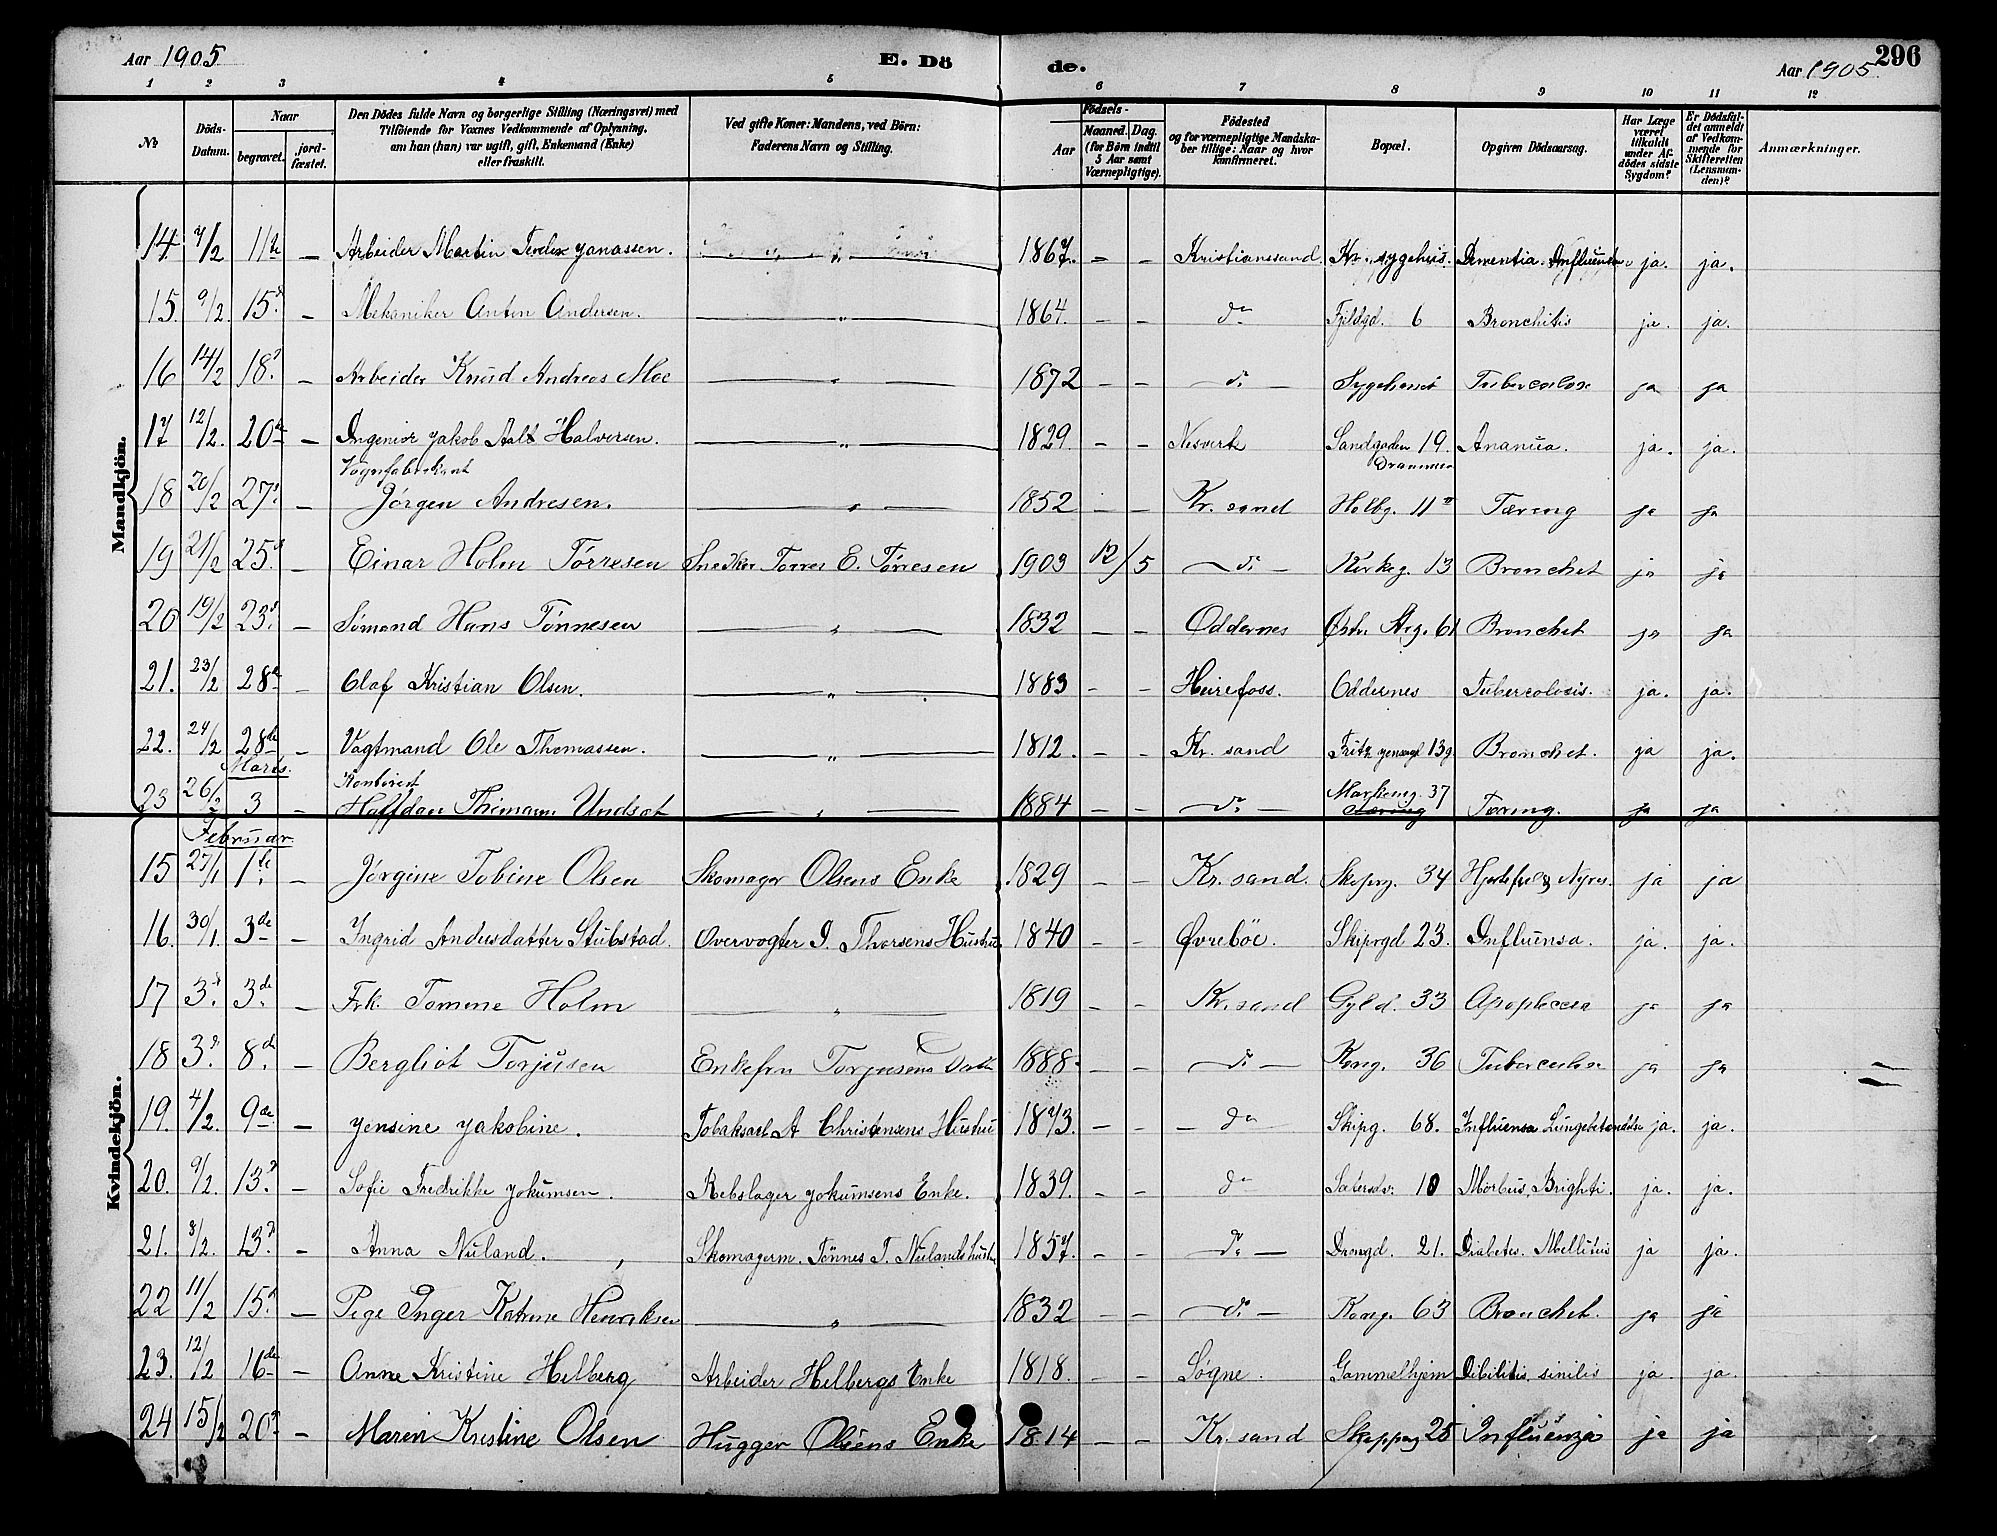 Aar 1905
E. Dö
de.
296
Aar 1905.
1 2 3 4 5 6 7 8 9 10 11 12
No
Döds-Datum.
Naar
begravet.
jord-fæstet.
Den Dödes fulde Navn og borgerlige Stilling (Næringsvei) med Tilföiende for Voxnes Vedkommende af Oplysning, om han (hun) var ugift, gift, Enkemand (Enke) eller fraskilt.
Ved gifte Koner: Mandens, ved Börn: Faderens Navn og Stilling.
Födsels-
Aar
Maaned. Dag.
(for Börn indtil 5 Aar samt Værnepligtige).
Födested og for værnepligtige Mandskaber tillige: Naar og hvor konfirmeret.
Bopæl.
Opgiven Dödsaarsag.
Har Læge været tilkaldt under Afdödes sidste Sygdom?
Er Dödsfaldet anmeldt af Vedkommende for Skifteretten (Lensmanden)?
Anmærkninger.
Mandkjön.
14. 7/2 11te — Arbeider Martin Jonassen. 1867. — — Kristianssand. Kr. sygehus. Dementia. Influensa ja. ja.
15. 9/2. 15d. — Mekaniker Anton Andersen. — " — 1864. — — do Fjeldgd. 6 Bronchitis ja. ja.
16 14/2 18d. — Arbeider Knud Andreas Moe — " — 1872 — — do — Sygehuset Tuberculose ja ja
17 12/2. 20de — Ingeniør Jakob Aall Halvorsen. — " — 1829. — — Nesverk Sandgaden 19. Drammen ja. ja.
18 20/2 27d. — Vognfabrikant Jørgen Andresen. — " — 1852 — — Kr. sand Holbg. 11 Tæring ja ja
19 21/2 25d. — Einar Holm Tørresen Snedker Torres E. Tørresen 1903 12/5 — do — Kirkeg. 13 Bronchit ja ja
20 19/2 23d. — Sømand Hans Tønnesen — " — 1832 — — Oddernes Østr. Strg. 61 Bronchit ja ja
21. 23/2 28de — Olaf Kristian Olsen. — " — 1883 — — Heirefoss. Oddernes Tubercolosis. ja. ja.
22. 24/2 28de — Vagtmand Ole Thomassen. — " — 1812. — — Kr. sand Fritz Jensengd 13 Bronchit. ja ja.
Marts.
23 26/2 3 — Kontorist Halfdan Thimann Undset — " — 1884 — — do — Markeng. 37 Tæring. ja ja
Kvindekjön.
Februar.
15 27/1 1te. — Jørgine Tobine Olsen Skomager Olsens Enke 1829 — — Kr. sand. Skipg. 34 Hjertefeil & Nyres. ja ja
16. 30/1. 3de — Ingrid Andersdatter Stubstad Overvogter I. Thorsens Hustru 1840 — — Øvreböe. Skiprgd 23. Influensa. ja. ja.
17 3d. 3de. — Frk. Tomine Holm — " — 1819 — — Kr. sand Gyld. 33 Apoplecsia ja ja
18 3d. 8de. — Bergliot Torjusen Enkefru Torjusens Datter 1888. — — — do — Kong. 36 Tuberculose ja ja
19. 4/2. 9de — Jensine Jakobine. Tobaksarb. A Christensens Hustru 1873. — — — do Skipg. 68. Influensa Lungebetændelse ja. ja.
20. 9/2. 13d. — Sofie Fredrikke Jokumsen. Rebslager Jokumsens Enke. 1839. — — do Sætersdv. 10 Morbus Brighti. ja. ja.
21. 8/2. 13d. — Anna Nuland. Skomagerm. Tönnes T. Nulands hustru 1857. — — do — Drongd. 21. Diabetes Mellitus ja ja.
22 11/2 15d. — Pige Inger Katrine Henriksen — " — 1832 — — — do — Kong. 63 Bronchit. ja ja
23. 12/2 16de — Anne Kristine Helberg Arbeider Helbergs Enke 1818. — — Søgne. Gammelhjem Debilitis sinilis ja. ja.
24 15/2 20d. — Maren Kristine Olsen Hugger Olsens Enke 1814 — — Kr. sand Skipperg 25 Influenza ja ja